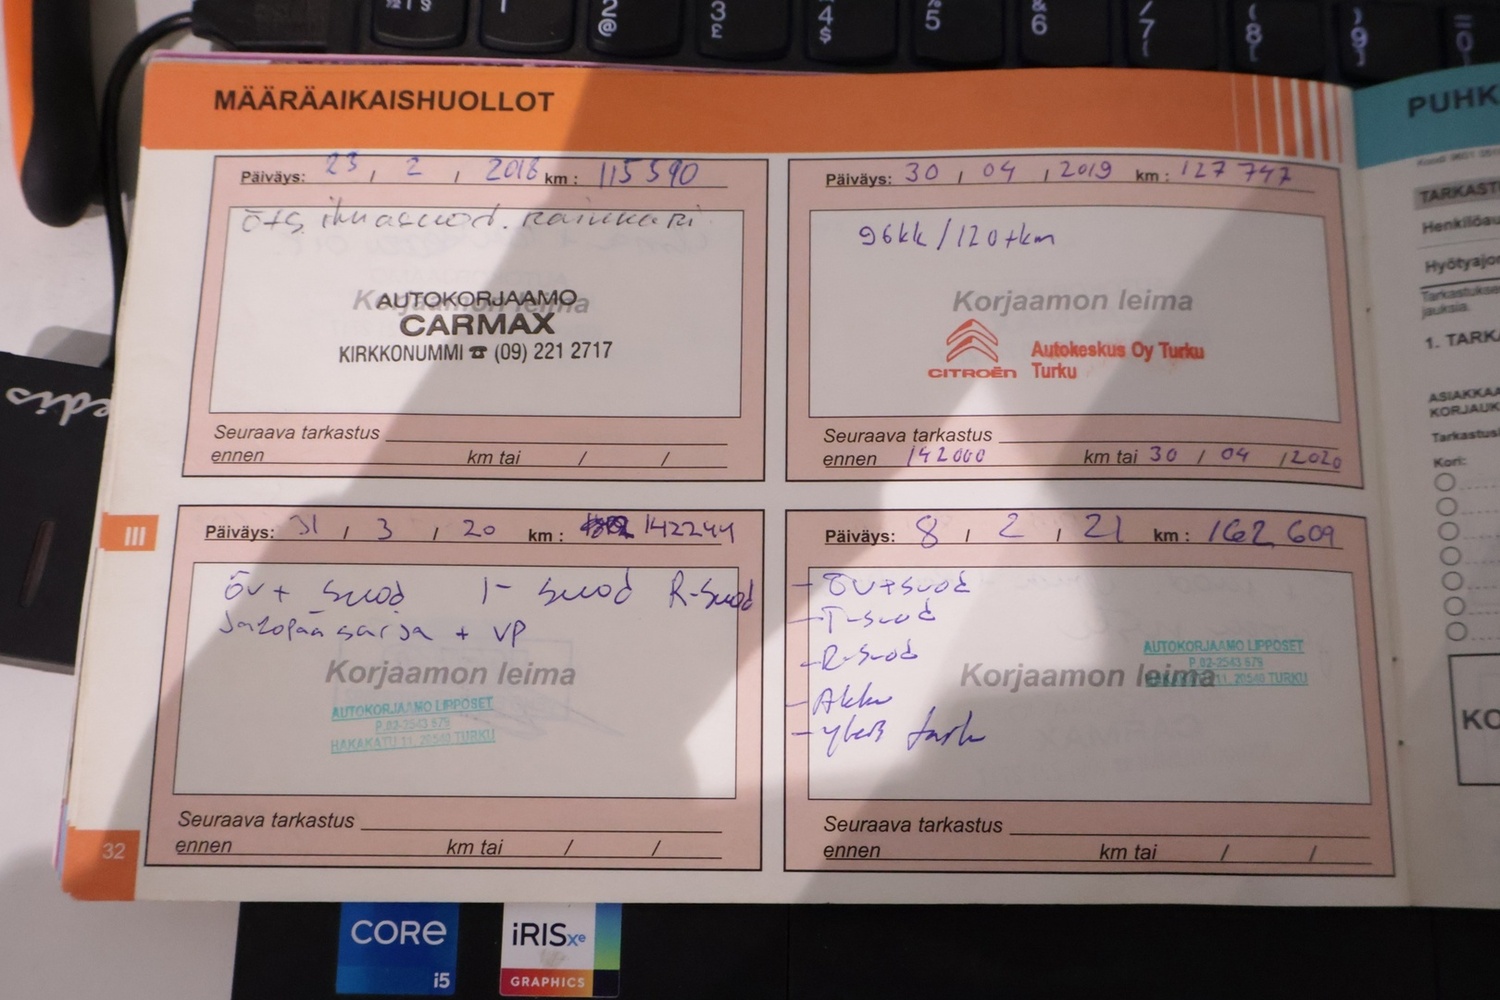 MÄÄRÄAIKAISHUOLLOT
Päiväys: 23 / 2 / 2018 km : 115 590
öts, ilmasuod. Rainkari
Korjaamon leima
AUTOKORJAAMO
CARMAX
KIRKKONUMMI ☎ (09) 221 2717
Seuraava tarkastus
ennen km tai / /
Päiväys: 30 / 04 / 2019 km : 127 747
96kk / 120tkm
Korjaamon leima
CITROËN
Autokeskus Oy Turku
Turku
Seuraava tarkastus
ennen 142000 km tai 30 / 04 / 2020
III
Päiväys: 31 / 3 / 20 km : 142244
öv+ suod I- suod R-suod
Jakopääsarja + VP
Korjaamon leima
AUTOKORJAAMO LIPPOSET
P.02-2543 679
HAKAKATU 11, 20540 TURKU
Seuraava tarkastus
ennen km tai / /
Päiväys: 8 / 2 / 21 km : 162 609
- öv+suod
- I-suod
- R-suod
- Akku
- yleis tark
Korjaamon leima
AUTOKORJAAMO LIPPOSET
P.02-2543 679
HAKAKATU 11, 20540 TURKU
Seuraava tarkastus
ennen km tai / /
32
PUHK
TARKAST
Henkilöau
Hyötyajo
Tarkastukse
jauksia.
1. TARK
ASIAKKAA
KORJAUK
Tarkastus
Kori:
KO
edis
CORE
i5
iRISxe
GRAPHICS
1 §
2 @
3 £
4 $
5
& 6
/ 7 {
( 8 [
) 9 ]
= 0